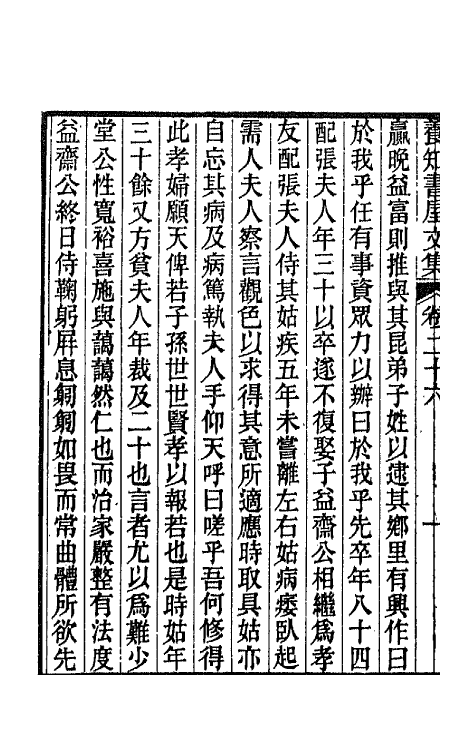 養知書屋文集 卷二十六 十
贏晚益富則推與其昆弟子姓以逮其鄉里有興作曰
於我乎任有事資眾力以辦曰於我乎先卒年八十四
配張夫人年三十以卒遂不復娶子益齋公相繼爲孝
友配張夫人侍其姑疾五年未嘗離左右姑病痿臥起
需人夫人察言觀色以求得其意所適應時取具姑亦
自忘其病及病篤執夫人手仰天呼曰嗟乎吾何修得
此孝婦願天俾若子孫世世賢孝以報若也是時姑年
三十餘又方貧夫人年裁及二十也言者尤以爲難少
堂公性寬裕喜施與藹藹然仁也而治家嚴整有法度
益齋公終日侍鞠躬屛息匑匑如畏而常曲體所欲先